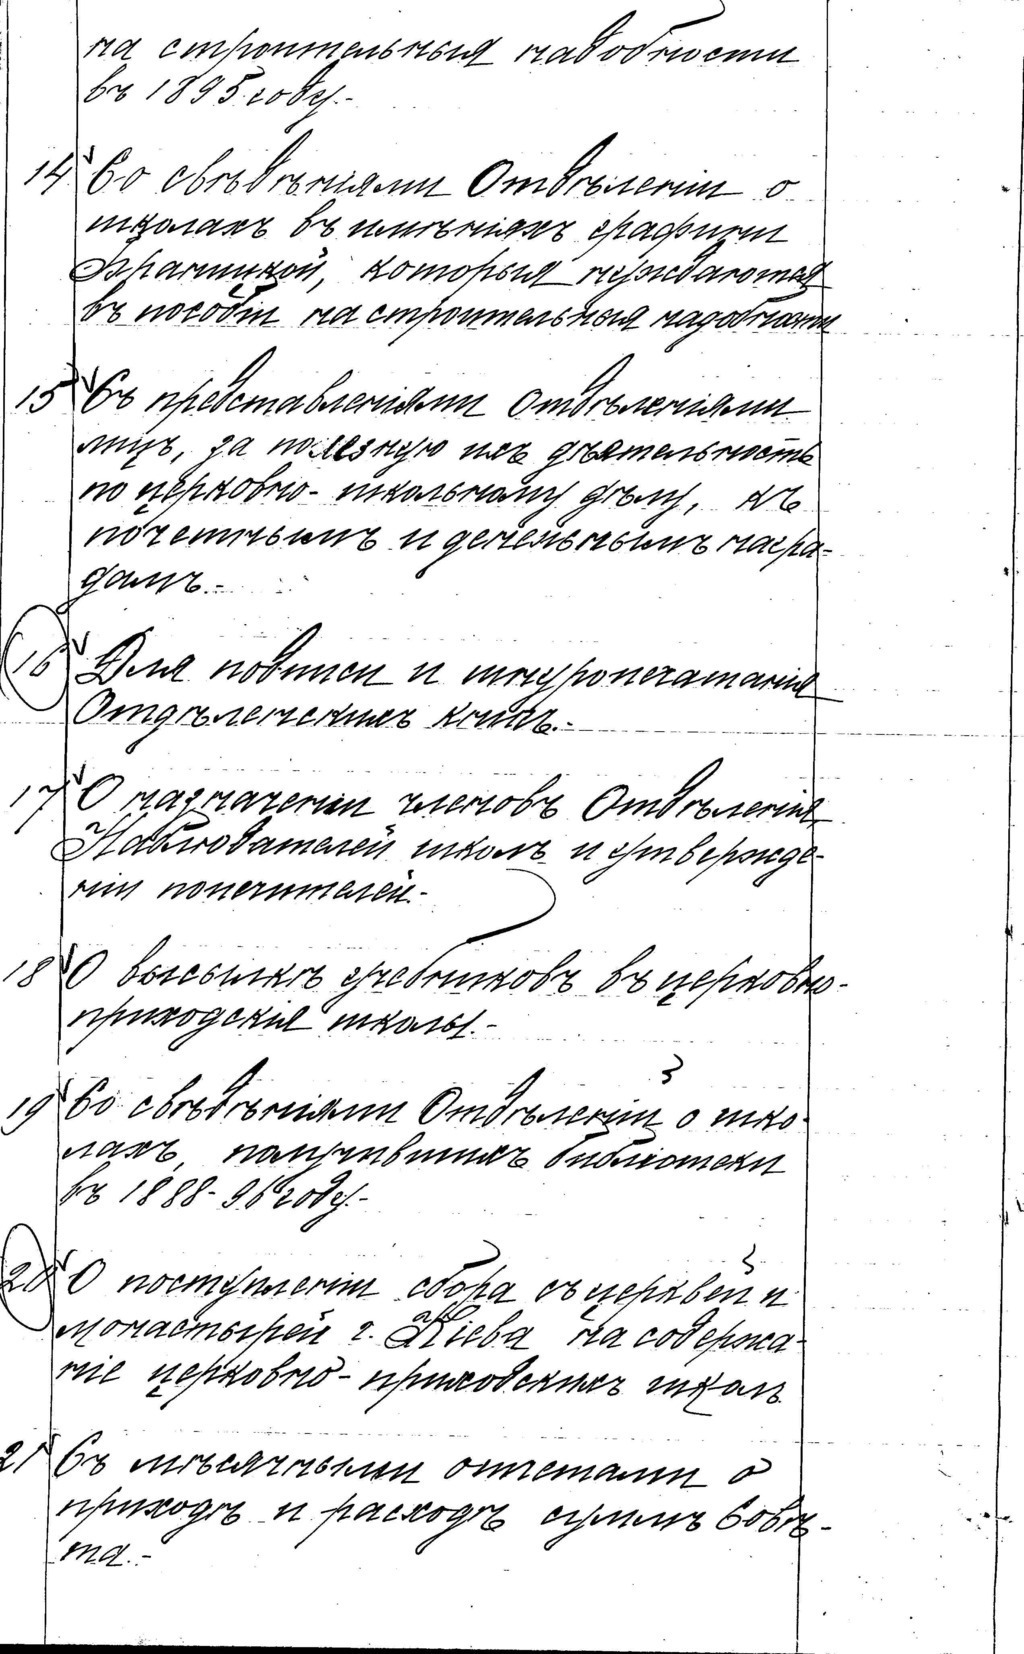 на строительныя надобности
въ 1895 году.-
14 Со свѣдѣніями Отдѣленій о
школахъ въ имѣніяхъ графини
Браницкой, которыя нуждаются
въ пособіи на строительныя надобности
15 Съ представленіями Отдѣленіями
лицъ, за полезную ихъ дѣятельность
по церковно-школьному дѣлу, къ
почетнымъ и денежнымъ награ=
дамъ.-
16 Для подписи и шнуропечатанія
Отдѣленскихъ книгъ.-
17 О назначеніи членовъ Отдѣленія
Наблюдателей школъ и утвержде-
ніи попечителей.-
18 О высылкѣ учебниковъ въ церковно-
приходскія школы.-
19 Со свѣдѣніями Отдѣленій о шко-
лахъ, получившихъ библіотеки
въ 1888-96 году.-
20 О поступленіи сбора съ церквей и
монастырей г. Кіева на содержа-
ніе церковно-приходскихъ школъ
21 Съ мѣсячными отчетами о
приходѣ и расходѣ суммъ Совѣ-
та.-